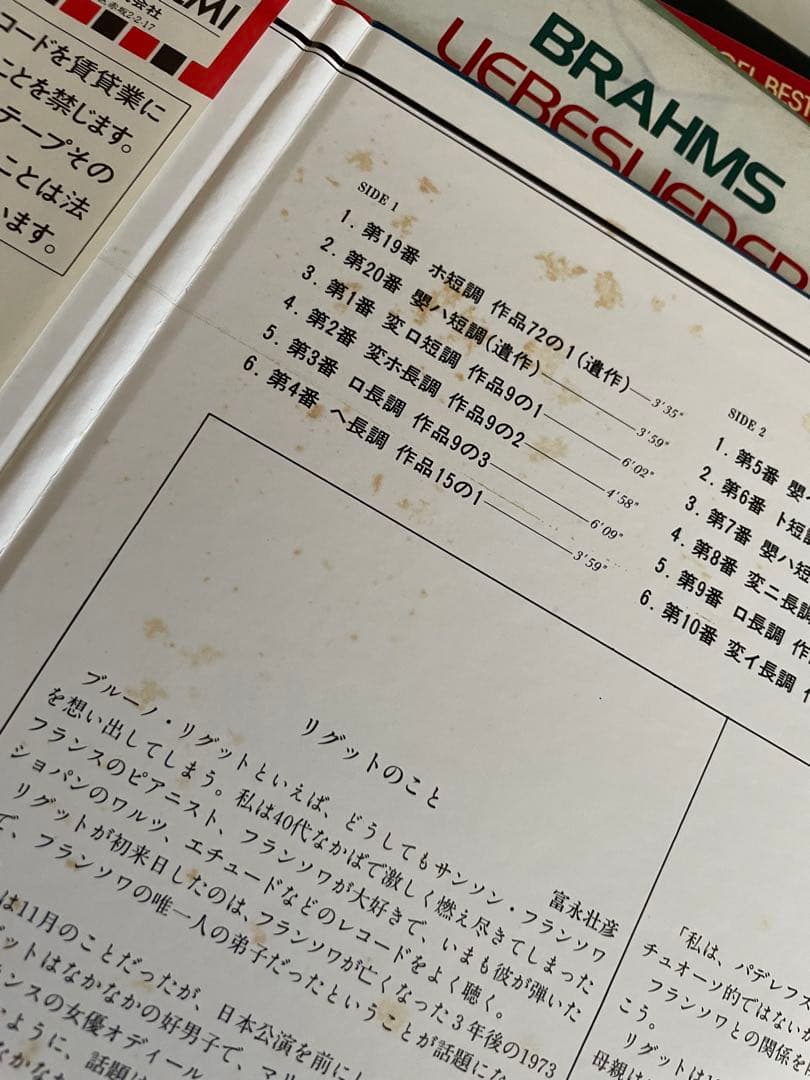 EMI
式会社
赤坂2-2-17
コードを賃貸業に
ことを禁じます。
テープその
ことは法
います。
BRAHMS
LIEBESLIEDER
BEST
SIDE 1
1. 第19番 ホ短調 作品72の1(遺作) 3'35"
2. 第20番 嬰ハ短調(遺作) 3'59"
3. 第1番 変ロ短調 作品9の1 6'02"
4. 第2番 変ホ長調 作品9の2 4'58"
5. 第3番 ロ長調 作品9の3 6'09"
6. 第4番 ヘ長調 作品15の1 3'59"
SIDE 2
1. 第5番 嬰
2. 第6番 ト短調
3. 第7番 嬰ハ短
4. 第8番 変ニ長調
5. 第9番 ロ長調 作
6. 第10番 変イ長調
リグットのこと
富永壮彦
ブルーノ・リグットといえば、どうしてもサンソン・フランソワ
を想い出してしまう。私は40代なかばで激しく燃え尽きてしまった
フランスのピアニスト、フランソワが大好きで、いまも彼が弾いた
ショパンのワルツ、エチュードなどのレコードをよく聴く。
リグットが初来日したのは、フランソワが亡くなった3年後の1973
で、フランソワの唯一人の弟子だったということが話題にな
は11月のことだったが、日本公演を前にし
ットはなかなかの好男子で、マリ
ランスの女優オディール
ように、話題は
なかなか
「私は、パデレフス
チュオーソ的ではないか
フランソワとの関係を
こう。
リグットは
母親は